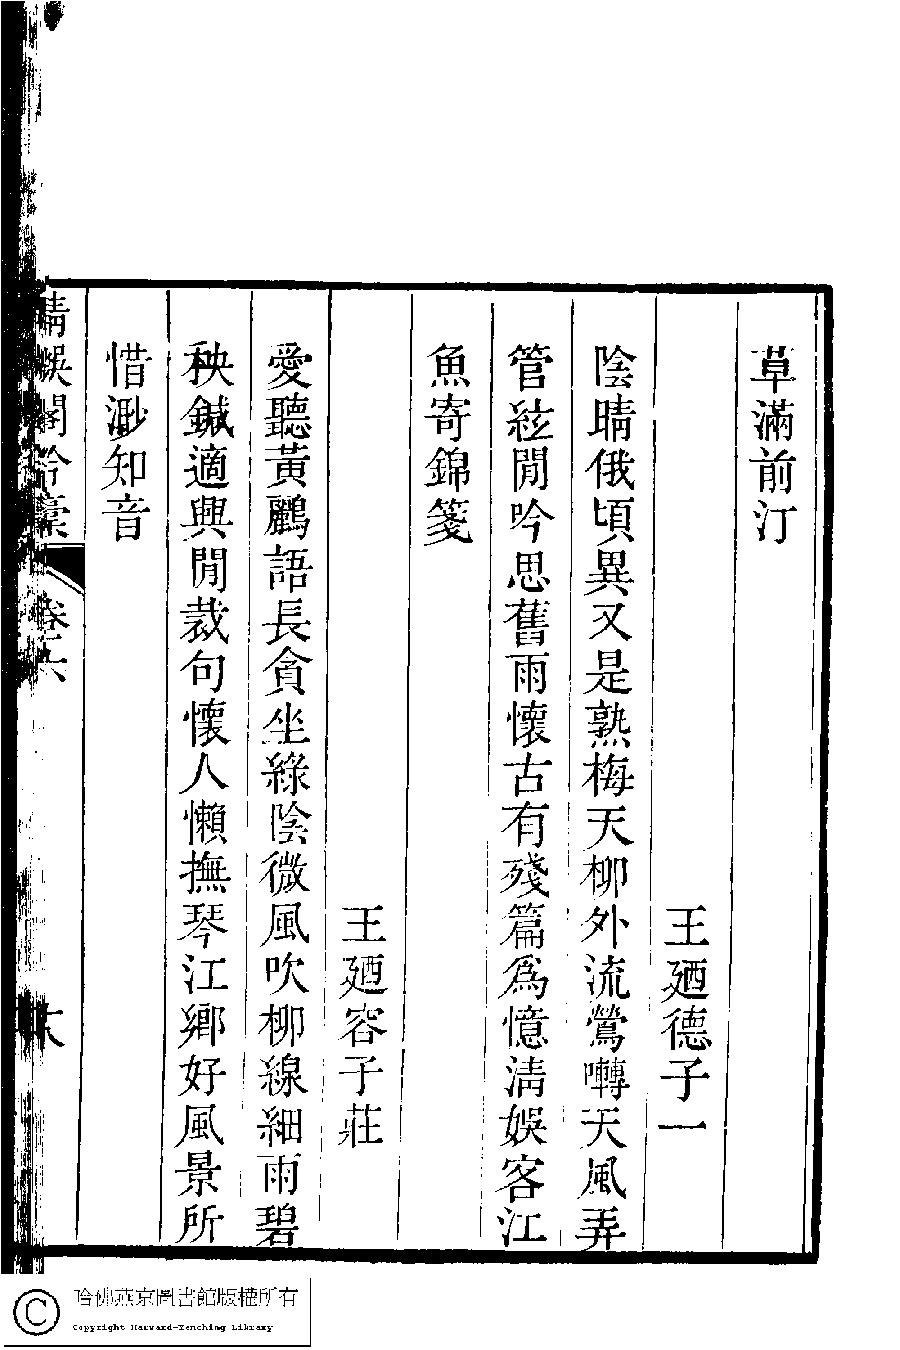 草滿前汀
王廼德子一
陰晴俄頃異又是熟梅天柳外流鶯囀天風弄
管絃閒吟思舊雨懷古有殘篇爲憶淸娛客江
魚寄錦箋
王廼容子莊
愛聽黃鸝語長貪坐綠陰微風吹柳線細雨碧
秧鍼適興閒裁句懷人懶撫琴江鄉好風景所
惜渺知音
淸娛閣吟藁 卷六
哈佛燕京圖書館版權所有
Copyright Harvard-Yenching Library